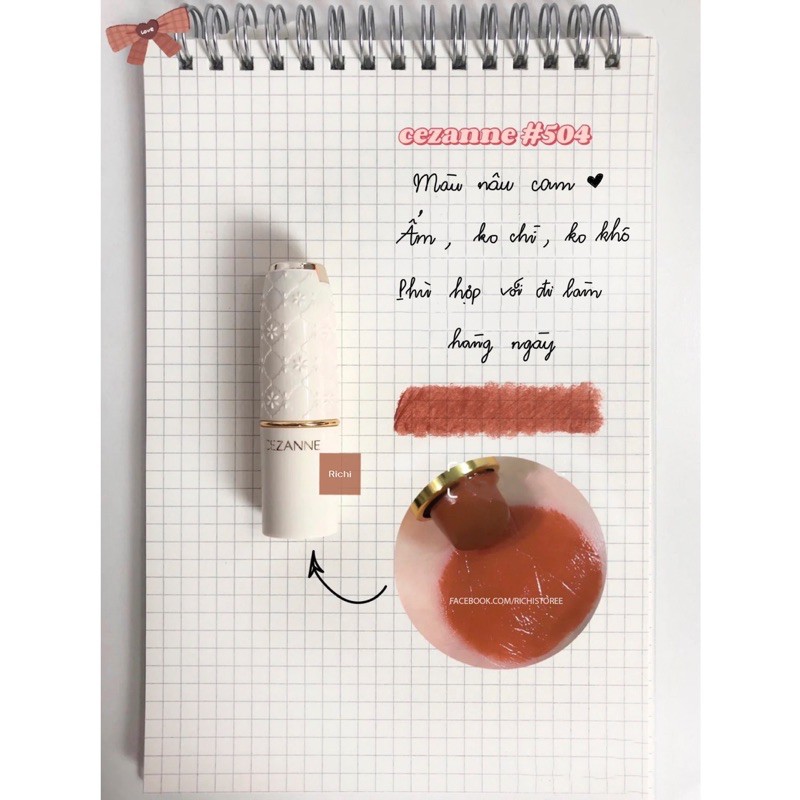 Love
cezanne #504
Màu nâu cam
Ẩm, ko chì, ko khô
Phù hợp với đi làm
hàng ngày
CEZANNE
Richi
FACEBOOK.COM/RICHISTOREE